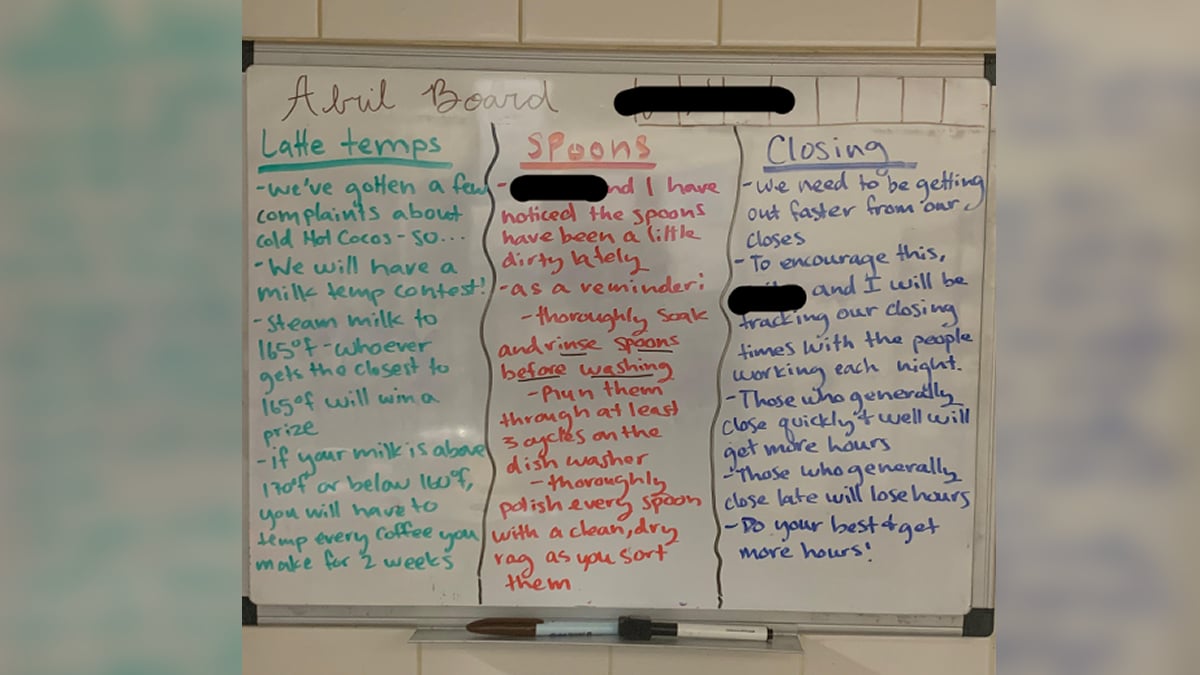 Abril Board
Latte temps
-we've gotten a few
complaints about
cold Hot Cocos - so...
-We will have a
milk temp contest!
-Steam milk to
165°f - whoever
gets the closest to
165°f will win a
prize
-if your milk is above
170°f or below 160°f,
you will have to
temp every coffee you
make for 2 weeks
Spoons
- nd I have
noticed the spoons
have been a little
dirty lately
-as a reminder:
-thoroughly soak
and rinse spoons
before washing
-Run them
through at least
3 cycles on the
dish washer
-thoroughly
polish every spoon
with a clean, dry
rag as you sort
them
Closing
-we need to be getting
out faster from our
closes
-To encourage this,
and I will be
tracking our closing
times with the people
working each night.
-Those who generally
close quickly & well will
get more hours
-Those who generally
close late will lose hours
-Do your best & get
more hours!